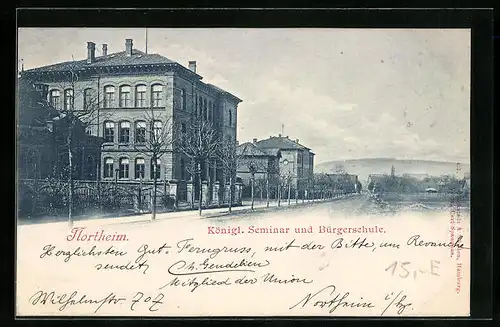 Northeim.
Königl. Seminar und Bürgerschule.
Herzlichsten Gut-Ferngruss, mit der Bitte, um Revanche
sendet Ch. Gendelien
Mitglied der Union
Wilhelmstr 707
Northeim i/H.
15,-E